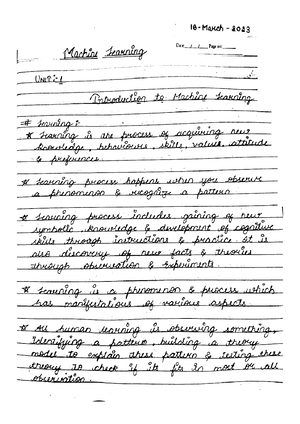 18-March-2023
Date / / Page no
Machine Learning
Unit:-1
Introduction to Machine Learning
# Learning:
* Learning is are process of acquiring new
knowledge, behaviours, skills, values, attitude
& preferences.
* Learning process happens when you observe
a phenomenon & recognize a pattern
* Learning process includes gaining of new
symbolic knowledge & development of cognitive
skills through instructions & practice. It is
also discovery of new facts & theories
through observation & experiments.
* Learning is a phenomenon & process which
has manifestations of various aspects.
* All human learning is observing something,
Identifying a pattern, building a theory
model to explain these pattern & testing these
theory to check if its fits in most or all
observation.